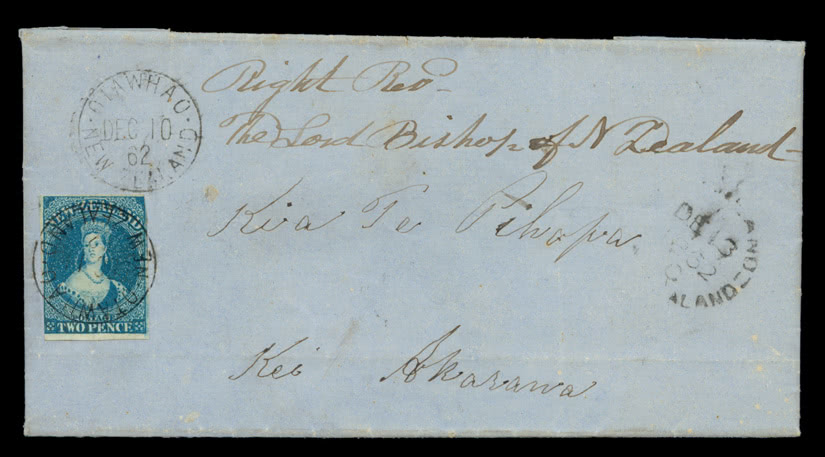 OTAWHAO
DEC 10
62
NEW ZEALAND
Right Rev
The Lord Bishop of N Zealand
Kia Te Pihopa
Kei Akarana
TWO PENCE
DE 13
62